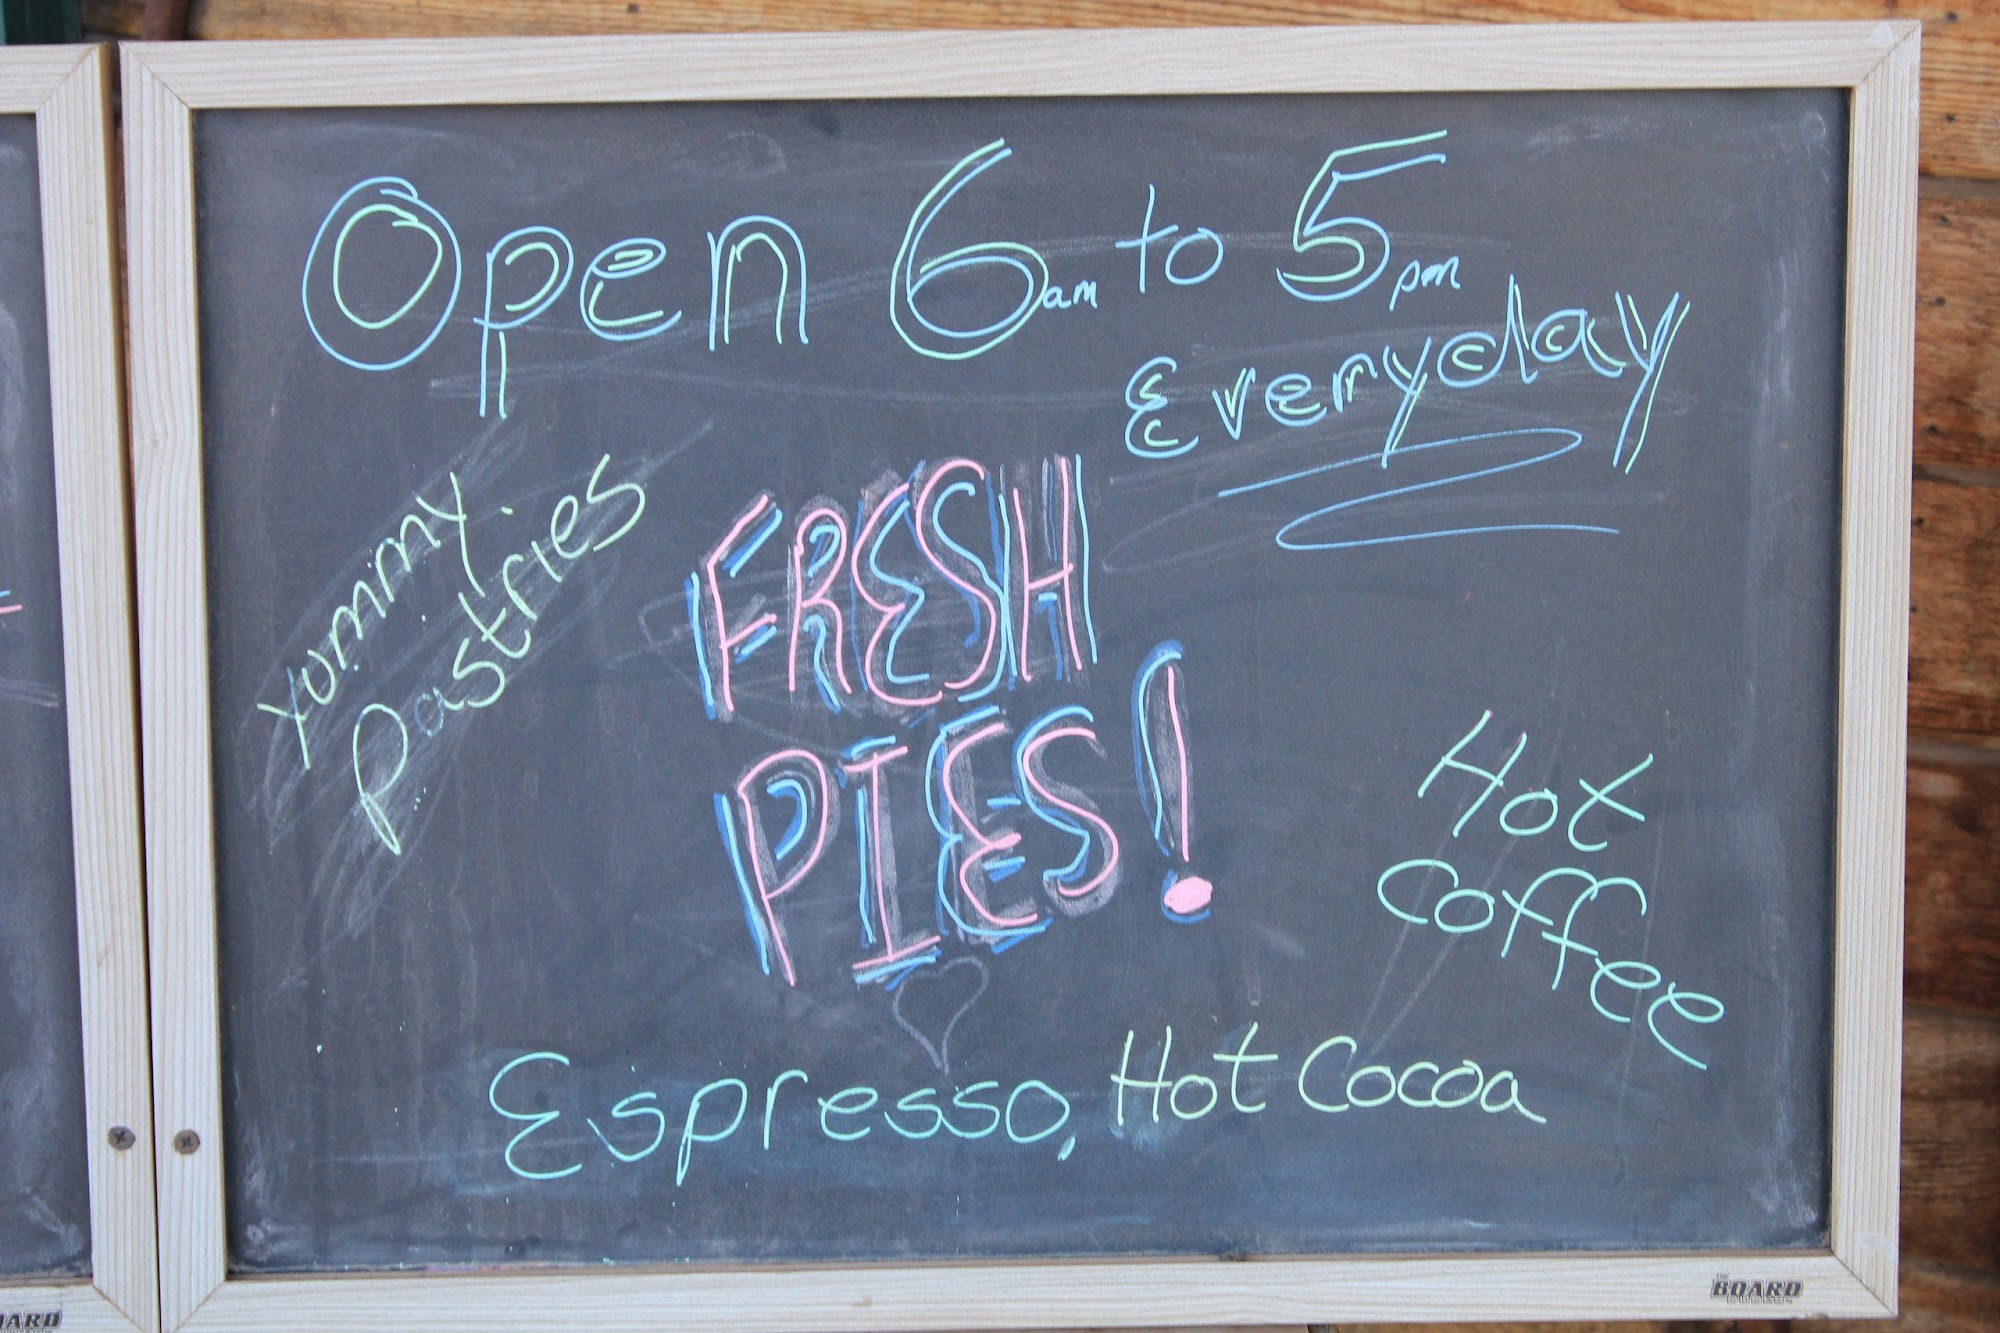 Open 6am to 5pm
Everyday
Yummy
Pastries
FRESH
PIES!
Hot
Coffee
Espresso, Hot Cocoa
THE
BOARD
DUDES
OARD